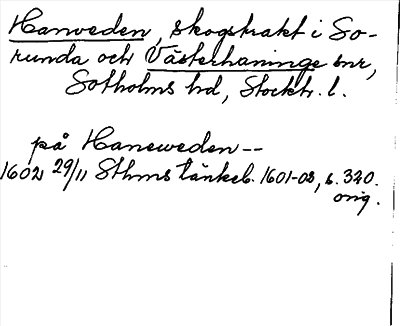 Hanveden, skogstrakt i So-
runda och Västerhaninge snr,
Sotholms hd, Stockh. l.
på Haneweden--
1602 29/11 Sthms tänkeb. 1601-08, s. 320.
orig.